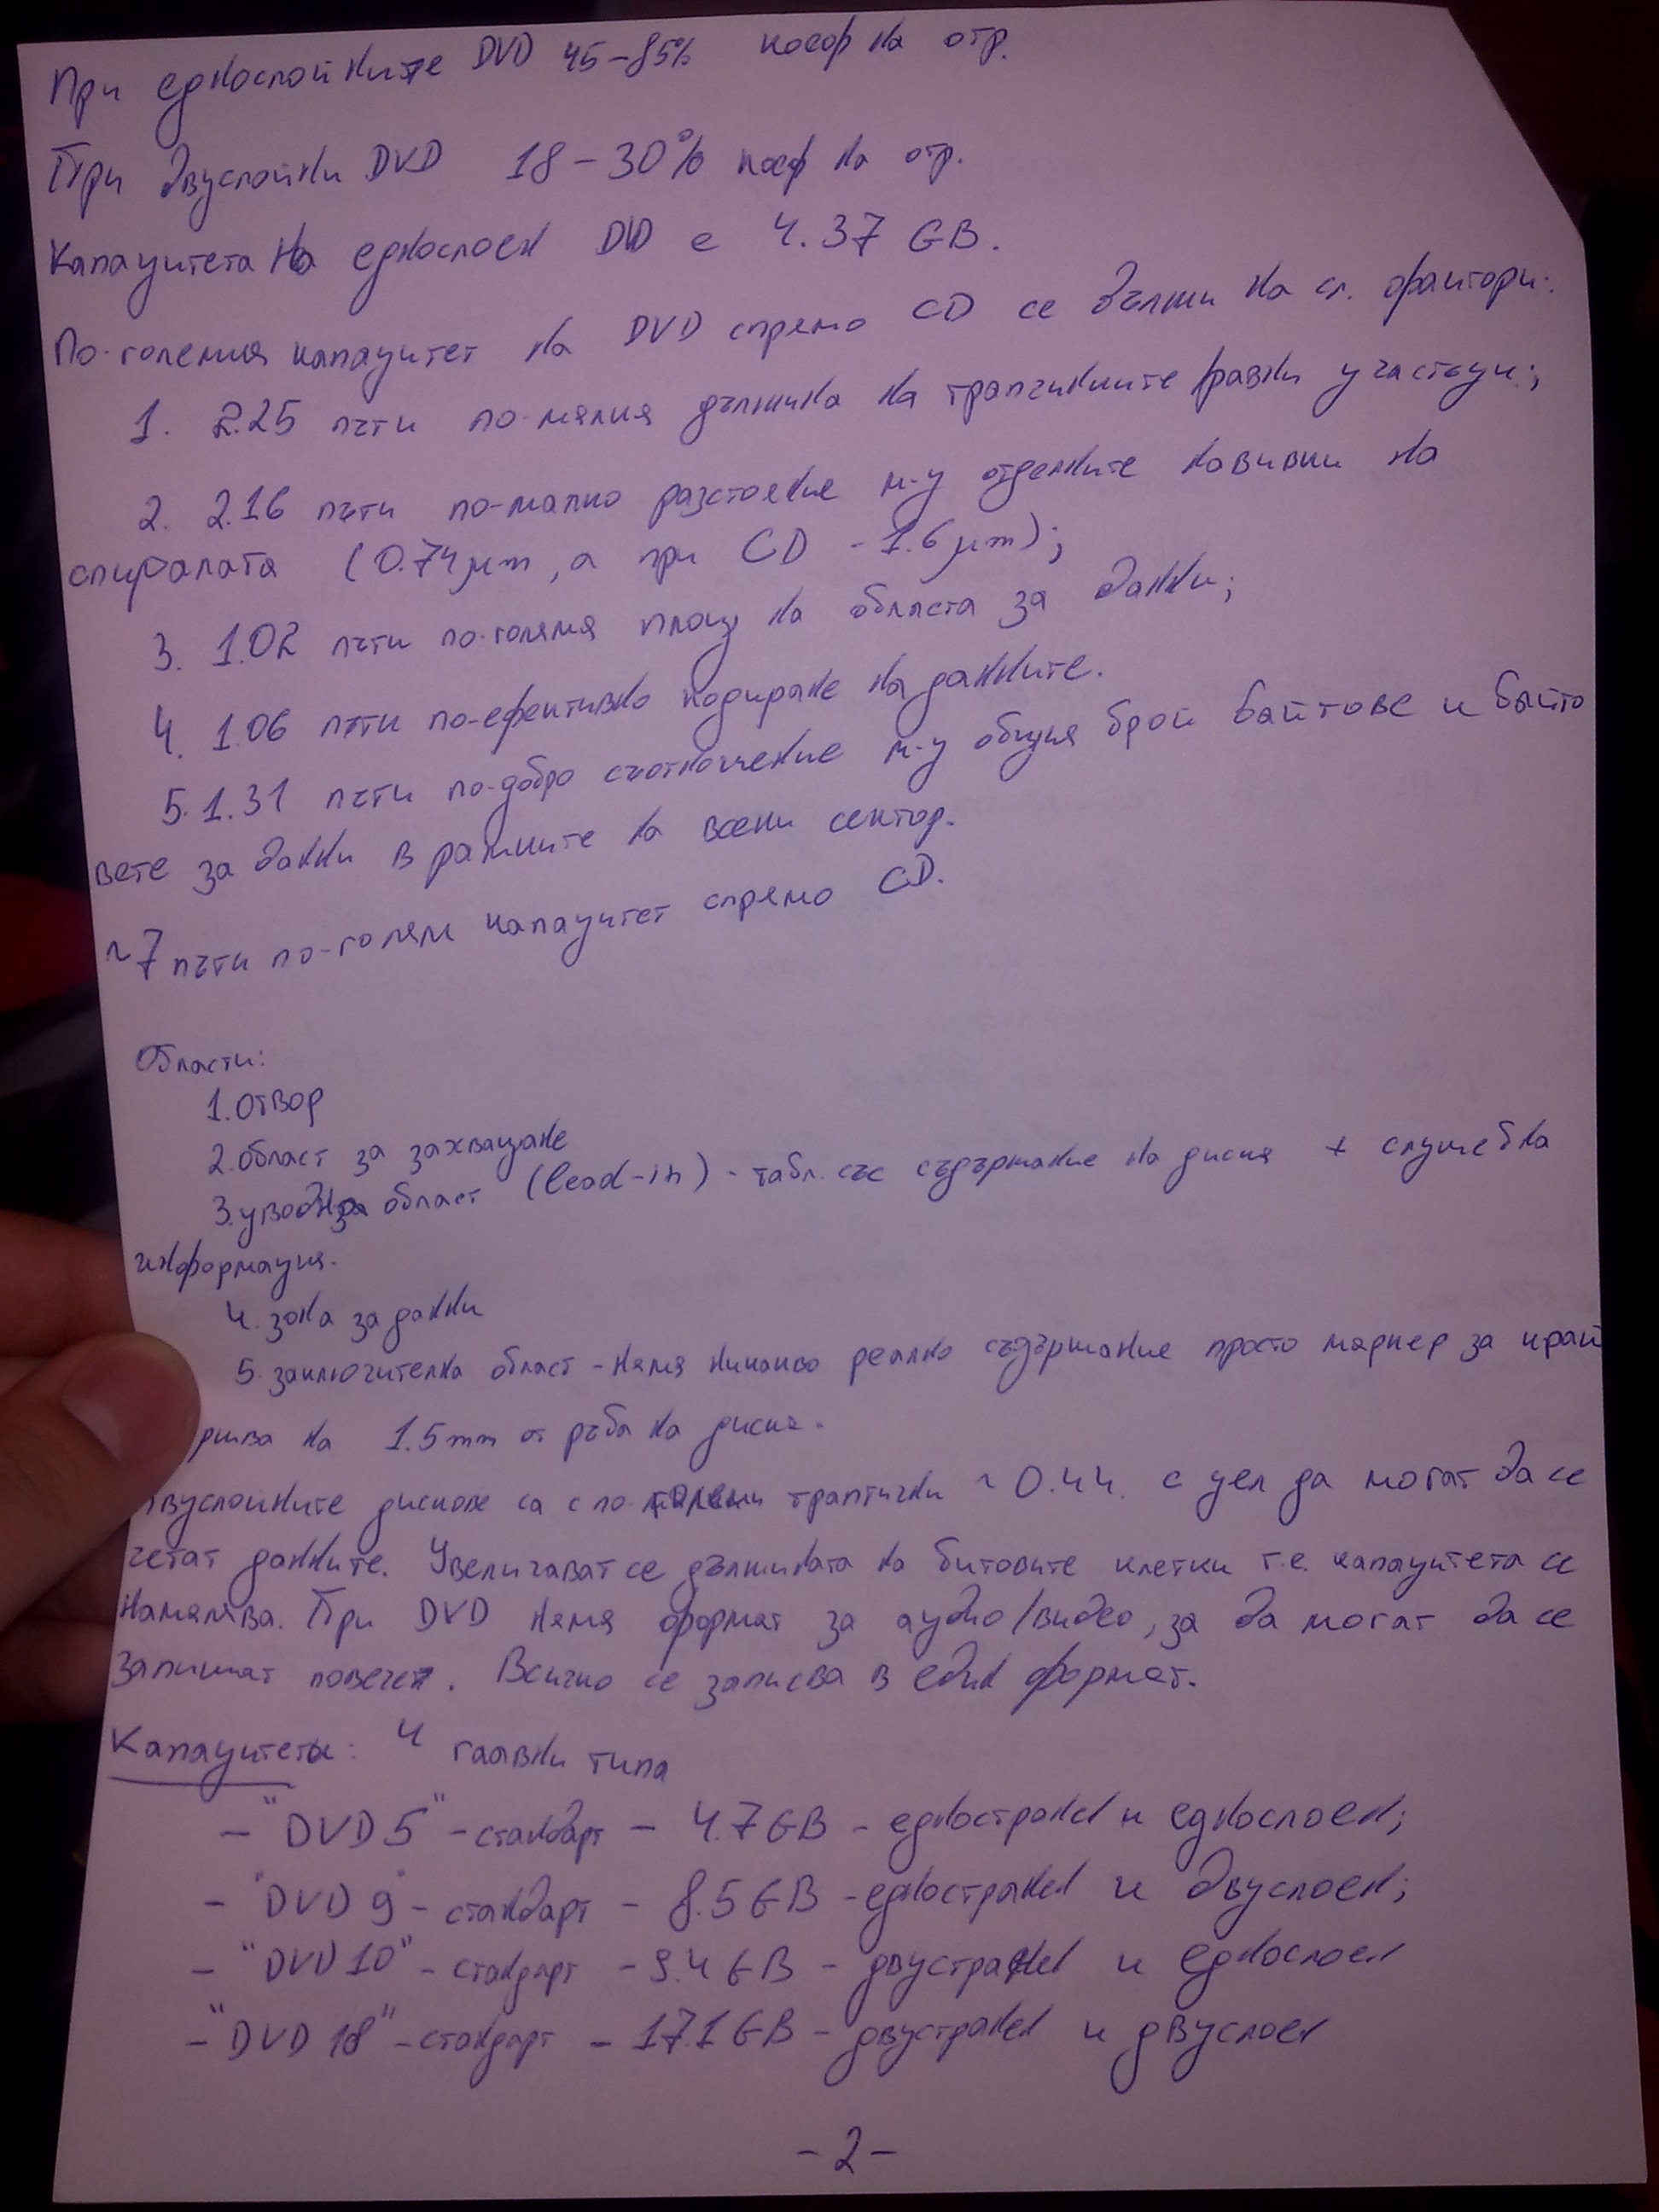 При еднослойните DVD 45-85% коеф на отр.
При двуслойни DVD 18-30% коеф на отр.
Капацитета на еднослоен DVD е 4.37 GB.
По-големия капацитет на DVD спрямо CD се дължи на сл. фактори:
1. 2.25 пъти по-малка дължина на трапчинките/равни участъци;
2. 2.16 пъти по-малко разстояние м-у отделните навивки на
спиралата (0.74μm, а при CD - 1.6μm);
3. 1.02 пъти по-голяма площ на областа за данни;
4. 1.06 пъти по-ефективно кодиране на данните.
5. 1.31 пъти по-добро съотношение м-у общия брой байтове и байто
вете за данни в рамките на всеки сектор.
~7 пъти по-голям капацитет спрямо CD.
Области:
1. отвор
2. област за захващане
3. уводна област (lead-in) - табл. със съдържание на диска + служебна
информация.
4. зона за данни
5. заключителна област - няма никакво реално съдържание просто маркер за край
на 1.5mm от ръба на диска.
двуслойните дискове са с по-големи трапчинки ~0.44. с цел да могат да се
четат данните. Увеличават се дължината на битовите клетки т.е. капацитета се
намалява. При DVD няма формат за аудио/видео, за да могат да се
запишат повече. Всичко се записва в един формат.
Капацитети: 4 главни типа
- "DVD 5" - стандарт - 4.7 GB - едностранен и еднослоен;
- "DVD 9" - стандарт - 8.5 GB - едностранен и двуслоен;
- "DVD 10" - стандарт - 9.4 GB - двустранен и еднослоен
- "DVD 18" - стандарт - 17.1 GB - двустранен и двуслоен
- 2 -